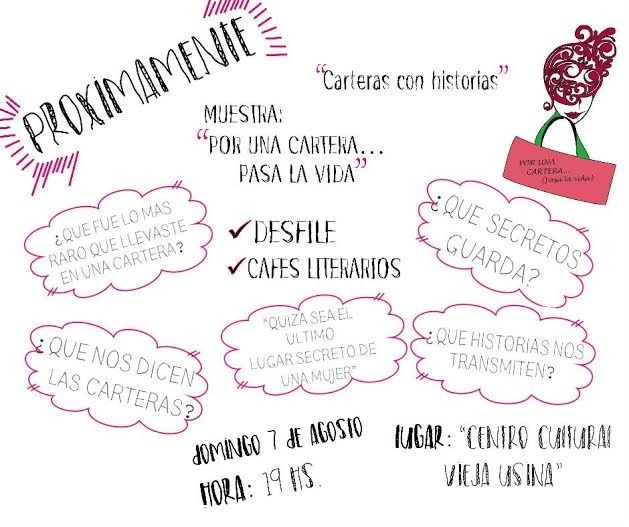 PROXIMAMENTE
"Carteras con historias"
MUESTRA:
"POR UNA CARTERA...
PASA LA VIDA"
POR UNA
CARTERA...
(pasa la vida)
¿QUE FUE LO MAS
RARO QUE LLEVASTE
EN UNA CARTERA?
DESFILE
CAFES LITERARIOS
¿QUE SECRETOS
GUARDA?
¿QUE NOS DICEN
LAS CARTERAS?
"QUIZA SEA EL
ULTIMO
LUGAR SECRETO DE
UNA MUJER"
¿QUE HISTORIAS NOS
TRANSMITEN?
DOMINGO 7 DE AGOSTO
HORA: 19 HS.
LUGAR: "CENTRO CULTURAL
VIEJA USINA"